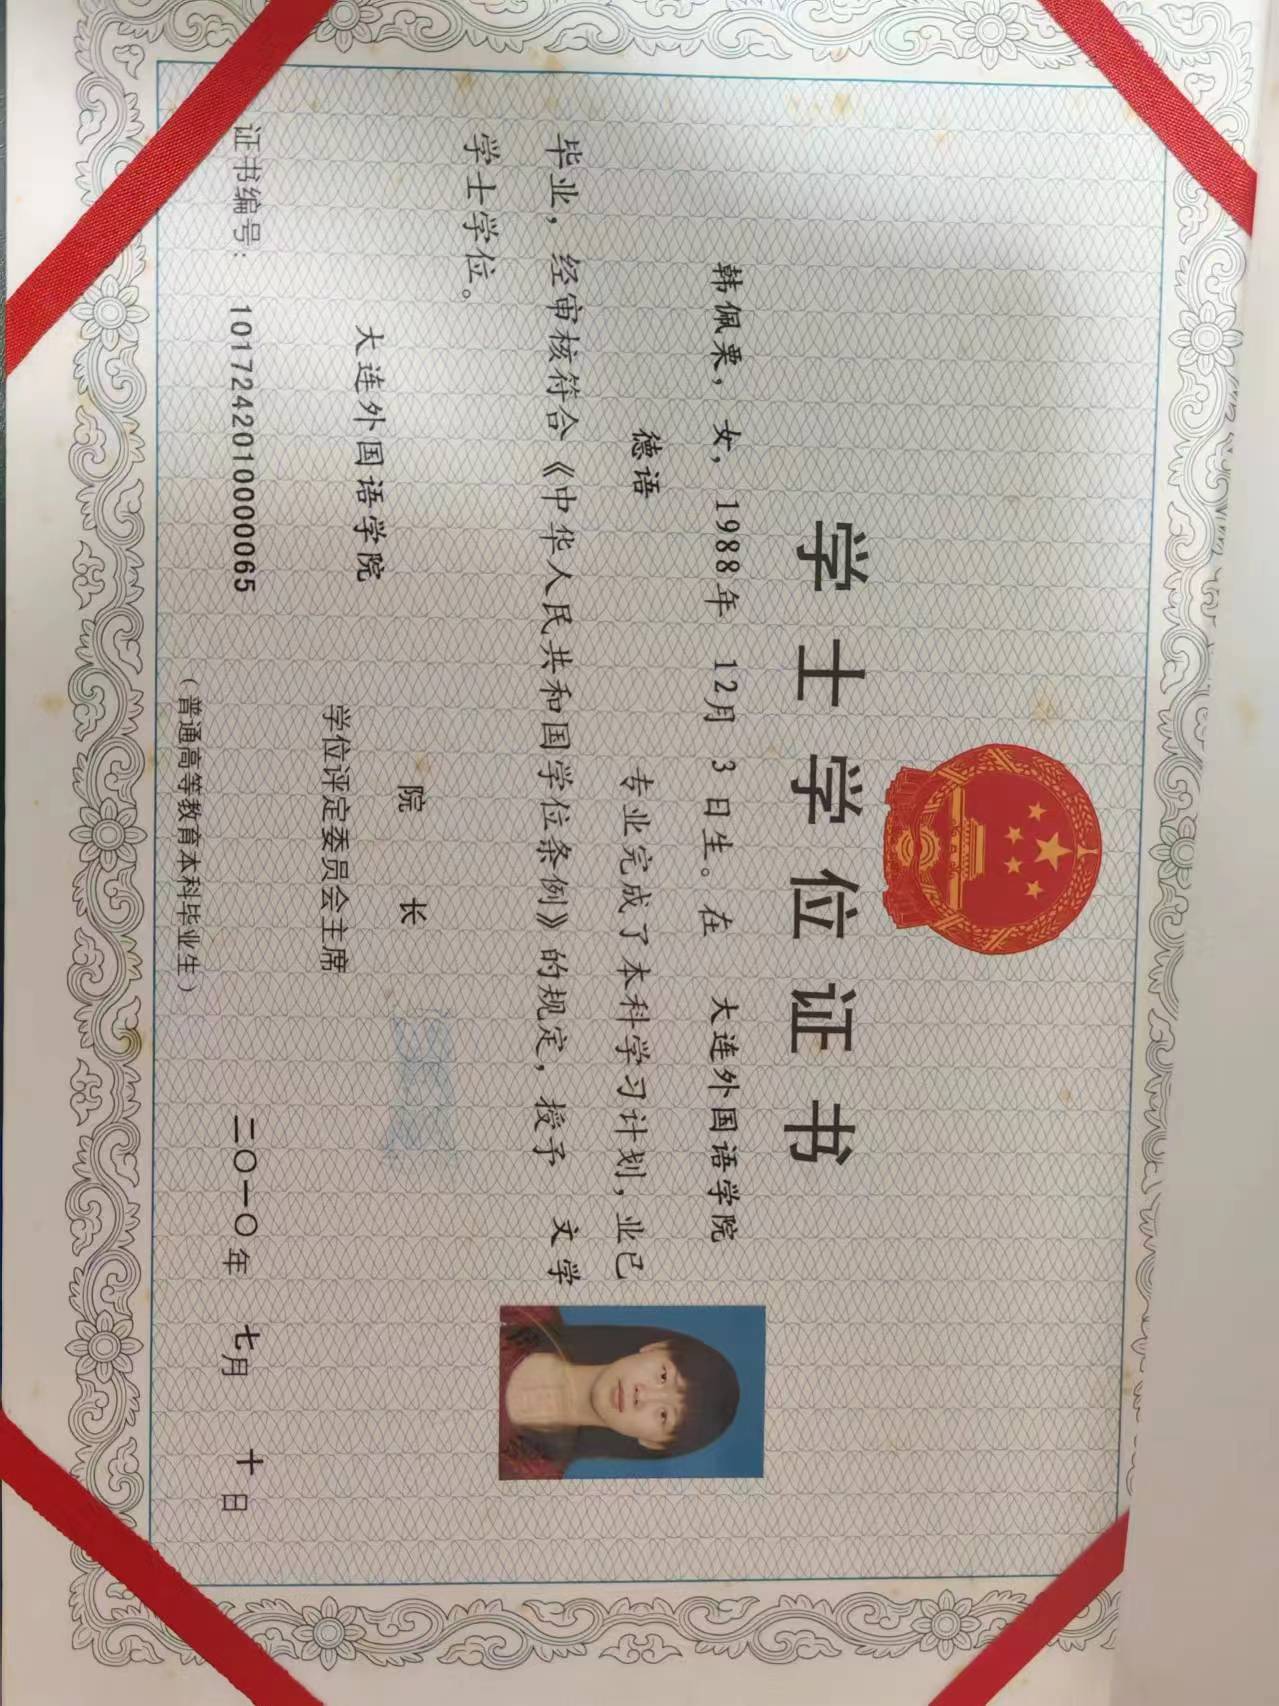 学士学位证书
韩佩栗，女，1988年 12月 3日生。在 大连外国语学院
德语 专业完成了本科学习计划，业已
毕业，经审核符合《中华人民共和国学位条例》的规定，授予 文学
学士学位。
院 长
大连外国语学院
学位评定委员会主席
证书编号：1017242010000065
二〇一〇年 七月 十日
（普通高等教育本科毕业生）